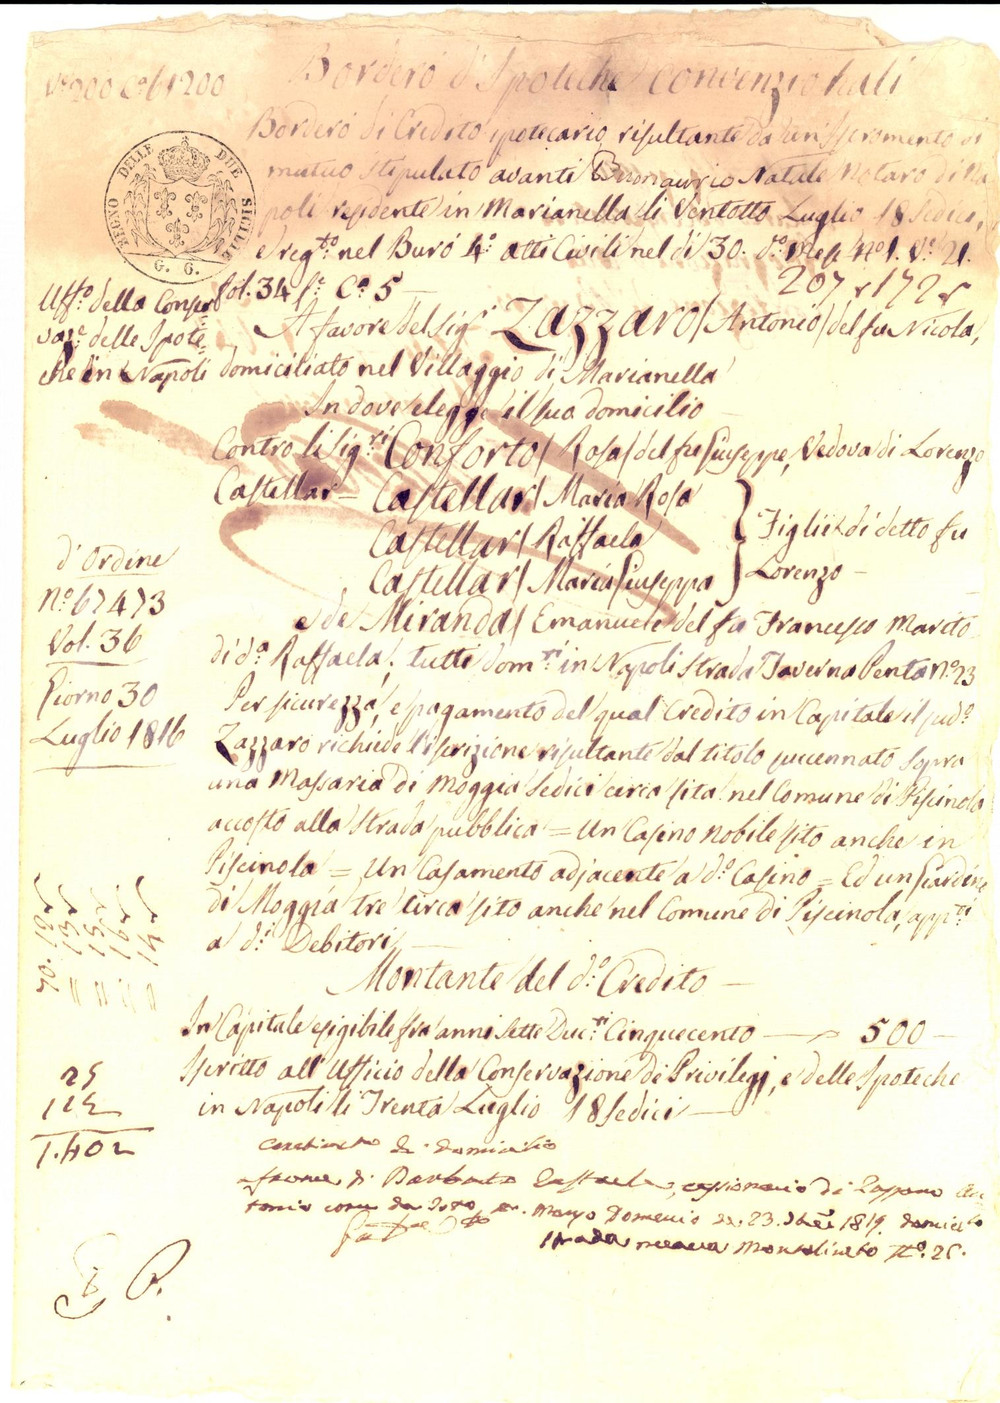 Borderò d'Ipoteche convenzionali
Borderò di Credito ipotecario risultante da un'Isstromento di
mutuo stipulato avanti Buonaurio Natale Notaro di Na
poli residente in Marianella li Ventotto Luglio 18Sedici,
e reg.to nel Burò 4.° atti Civili nel dì 30. d.° Mese N.°1. V.° 21.
fol. 34 C.a 5 —
207 172
REGNO DELLE DUE SICILIE
G. G.
Uff.° della Conser
vaz.e delle Ipote=
che in Napoli
A favore del Sig.r Zazzaro/Antonio/del fu Nicola,
domiciliato nel Villaggio di Marianella
In dove elegge il suo domicilio —
Contro li Sig.ri Conforto/Rosa/del fu Giuseppe, Vedova di Lorenzo
Castellar — Castellar/Maria Rosa
Castellar/Raffaela
Castellar/Maria Giuseppa
Figlie di detto fu
Lorenzo —
e de Miranda/Emanuele del fu Francesco Marito
di d.a Raffaela, tutti dom.ti in Napoli Strada Taverna Penta N.°23
d'Ordine
N.° 67473
Vol. 36
Giorno 30
Luglio 1816
Per sicurezza, e pagamento del qual Credito in Capitale il sud.°
Zazzaro richiede l'iscrizione risultante dal titolo succennato sopra
una Massaria di Moggia Sedici circa sita nel Comune di Piscinola
accosto alla strada pubblica = Un Casino nobile sito anche in
Piscinola = Un Casamento adjacente a d.° Casino = Ed un Giardino
di Moggia tre circa sito anche nel Comune di Piscinola, app.ti
a d.i Debitori —
Montante del d.° Credito —
In Capitale esigibile fra anni sette Duc.ti Cinquecento — 500 —
Iscritto all'Ufficio della Conservazione de Privilegj, e delle Ipoteche
in Napoli li Trenta Luglio 18Sedici —
25
1.402
a favore di Barbato Raffaele, cessionario di Zazzaro An
tonio come da Marzo Domenico 23. 1819. domicil.to
strada nuova Monteoliveto N.° 25.